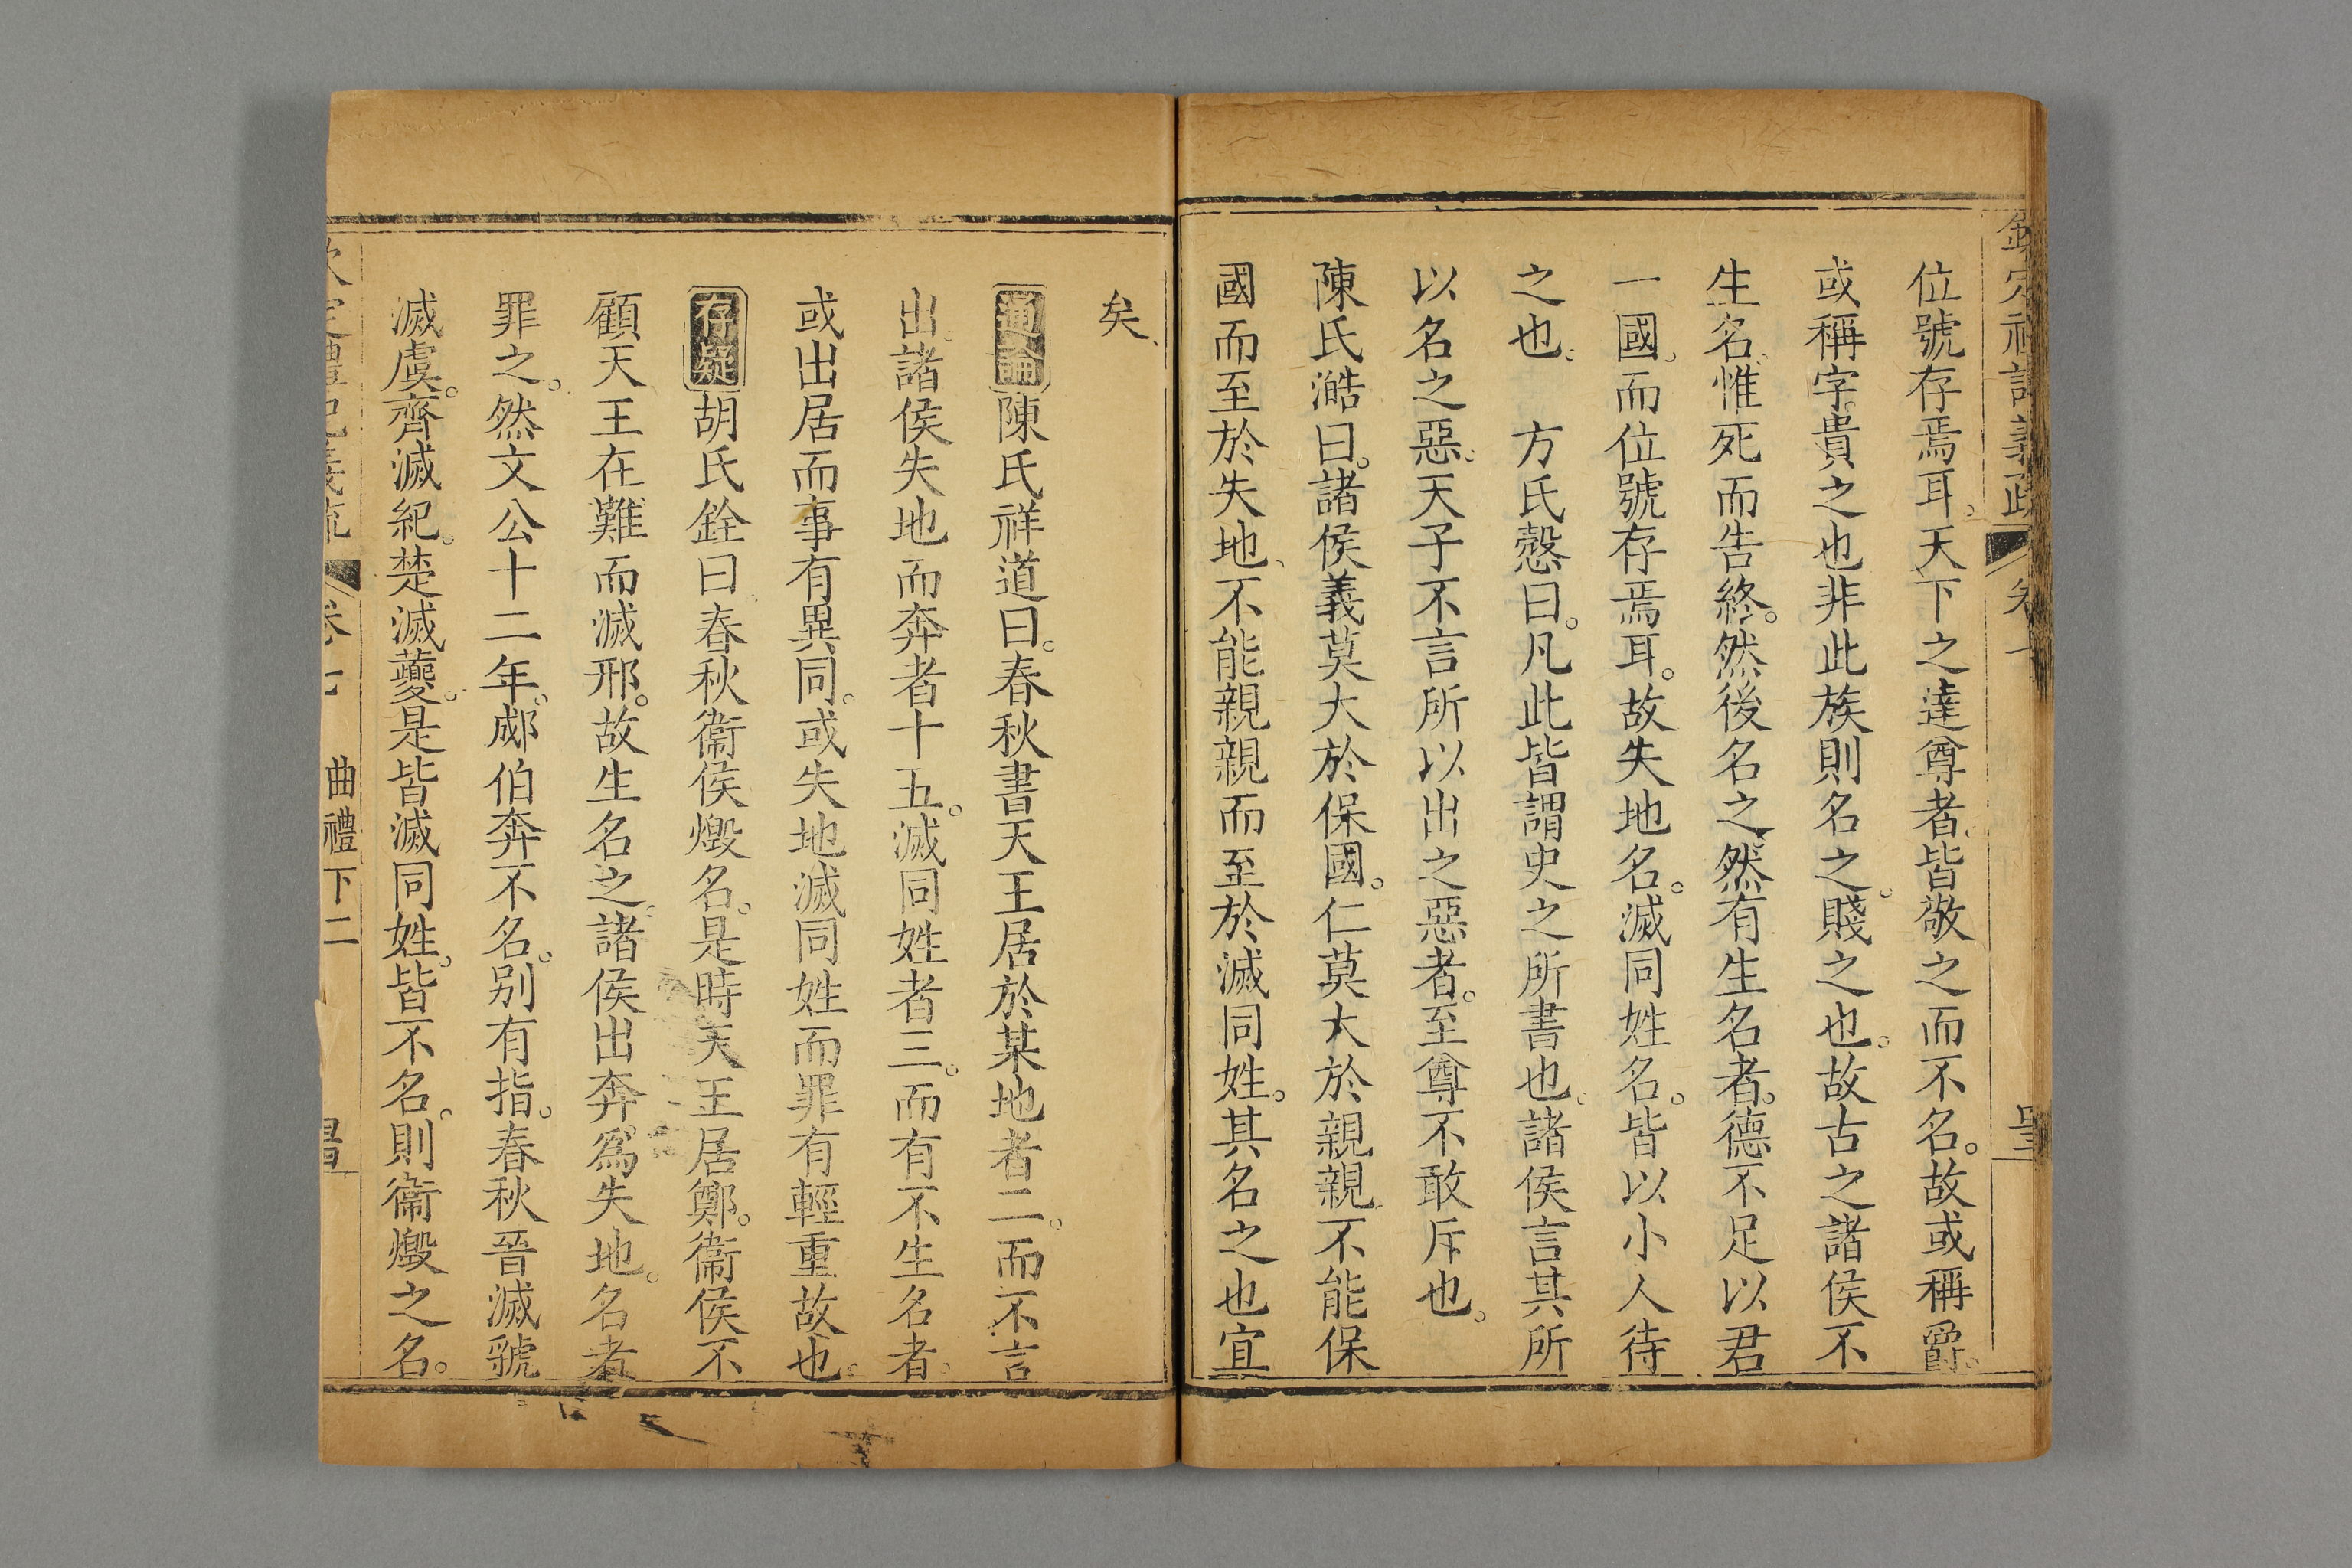 位號存焉耳。天下之達尊者。皆敬之而不名。故或稱爵。
或稱字。貴之也非此族則名之。賤之也。故古之諸侯不
生名。惟死而告終。然後名之。然有生名者。德不足以君
一國。而位號存焉耳。故失地名。滅同姓名。皆以小人待
之也。　方氏慤曰。凡此皆謂史之所書也。諸侯言其所
以名之惡。天子不言所以出之惡者。至尊不敢斥也。
陳氏澔曰。諸侯義莫大於保國。仁莫大於親親。不能保
國而至於失地、不能親親而至於滅同姓。其名之也宜
矣、
通論陳氏祥道曰。春秋書天王居於某地者二。而不言
出。諸侯失地而奔者十五。滅同姓者三。而有不生名者。
或出居而事有異同。或失地滅同姓而罪有輕重故也。
存疑胡氏銓曰春秋衞侯燬名。是時天王居鄭。衞侯不
顧天王在難而滅邢。故生名之。諸侯出奔。爲失地。名者
罪之。然文公十二年。郕伯奔不名。别有指。春秋晉滅虢
滅虞。齊滅紀。楚滅夔。是皆滅同姓。皆不名。則衞燬之名。
曲禮下二